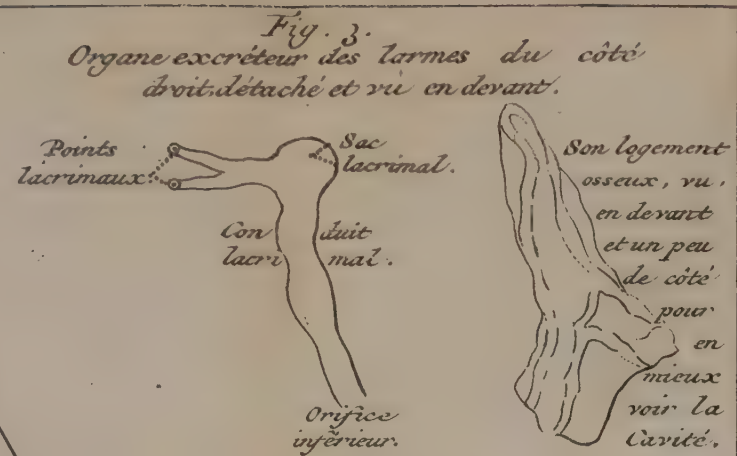 Fig. 3.
Organe excréteur des larmes du côté
droit, détaché et vû en devant.
Points
lacrimaux
Sac
lacrimal.
Con duit
lacri mal.
Orifice
inférieur.
Son logement
osseux, vu,
en devant
et un peu
de côté
pour
en
mieux
voir la
Cavité.